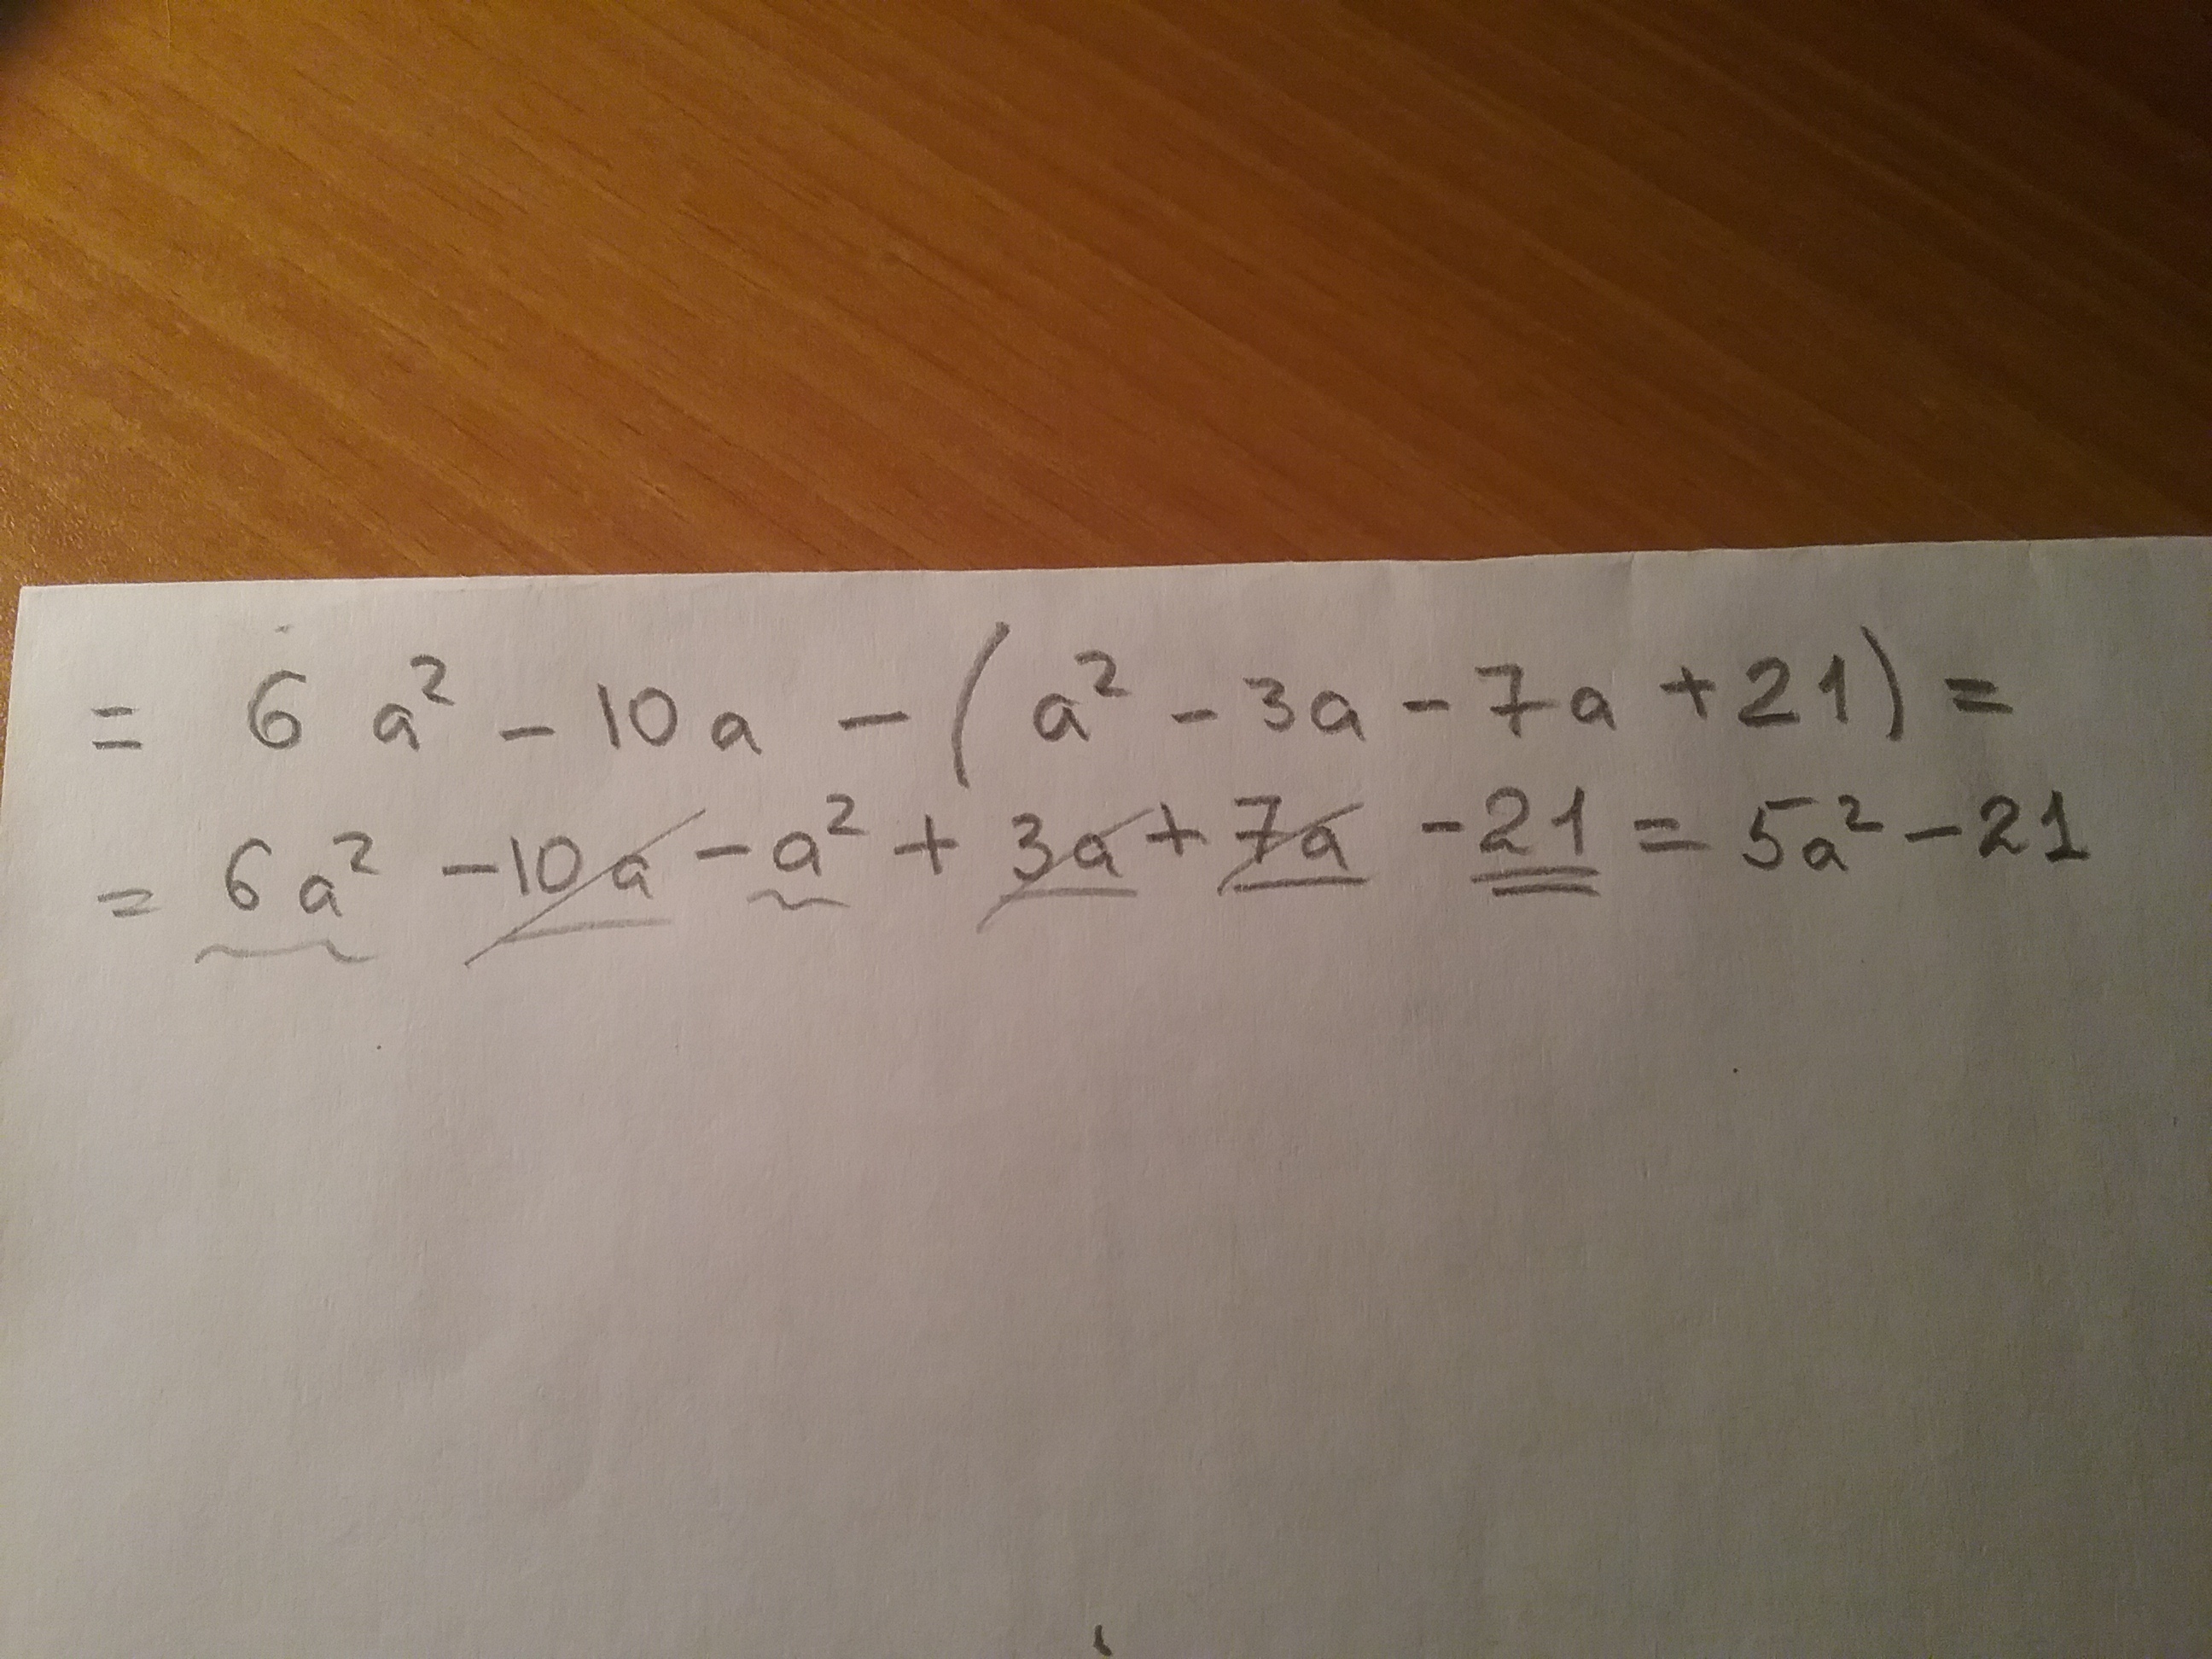 = 6a² - 10a - (a² - 3a - 7a + 21) =
= 6a² - 10a - a² + 3a + 7a - 21 = 5a² - 21